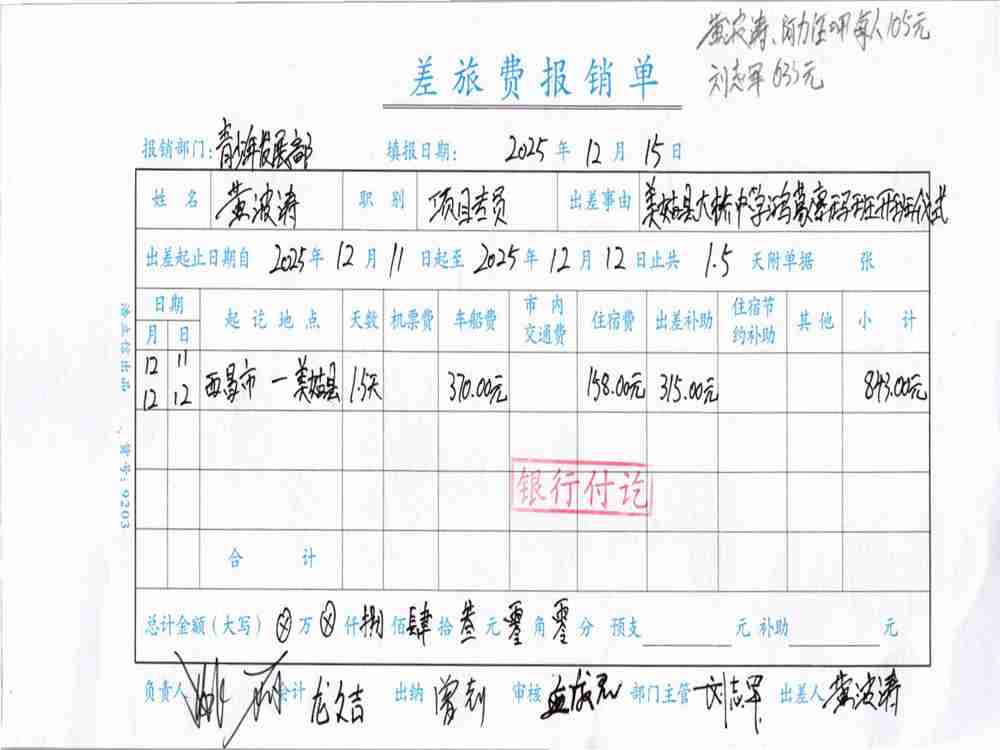 黄波涛、阿力伍呷每人105元
刘志军633元
差旅费报销单
报销部门：青少年发展部 填报日期： 2025年12月15日
姓名 黄波涛 职别 项目专员 出差事由 美姑县大桥中学鸿蒙密码班开班仪式
出差起止日期自 2025年12月11日起至2025年12月12日止共 1.5 天附单据 张
日期 起讫地点 天数 机票费 车船费 市内交通费 住宿费 出差补助 住宿节约补助 其他 小计
月 日
12 11
12 12 西昌市—美姑县 1.5天 370.00元 158.00元 315.00元 843.00元
银行付讫
合计
总计金额（大写）ⓧ万ⓧ仟捌佰肆拾叁元零角零分 预支 元 补助 元
负责人 会计 龙文吉 出纳 曾莉 审核 部门主管 刘志军 出差人 黄波涛
货号：9203